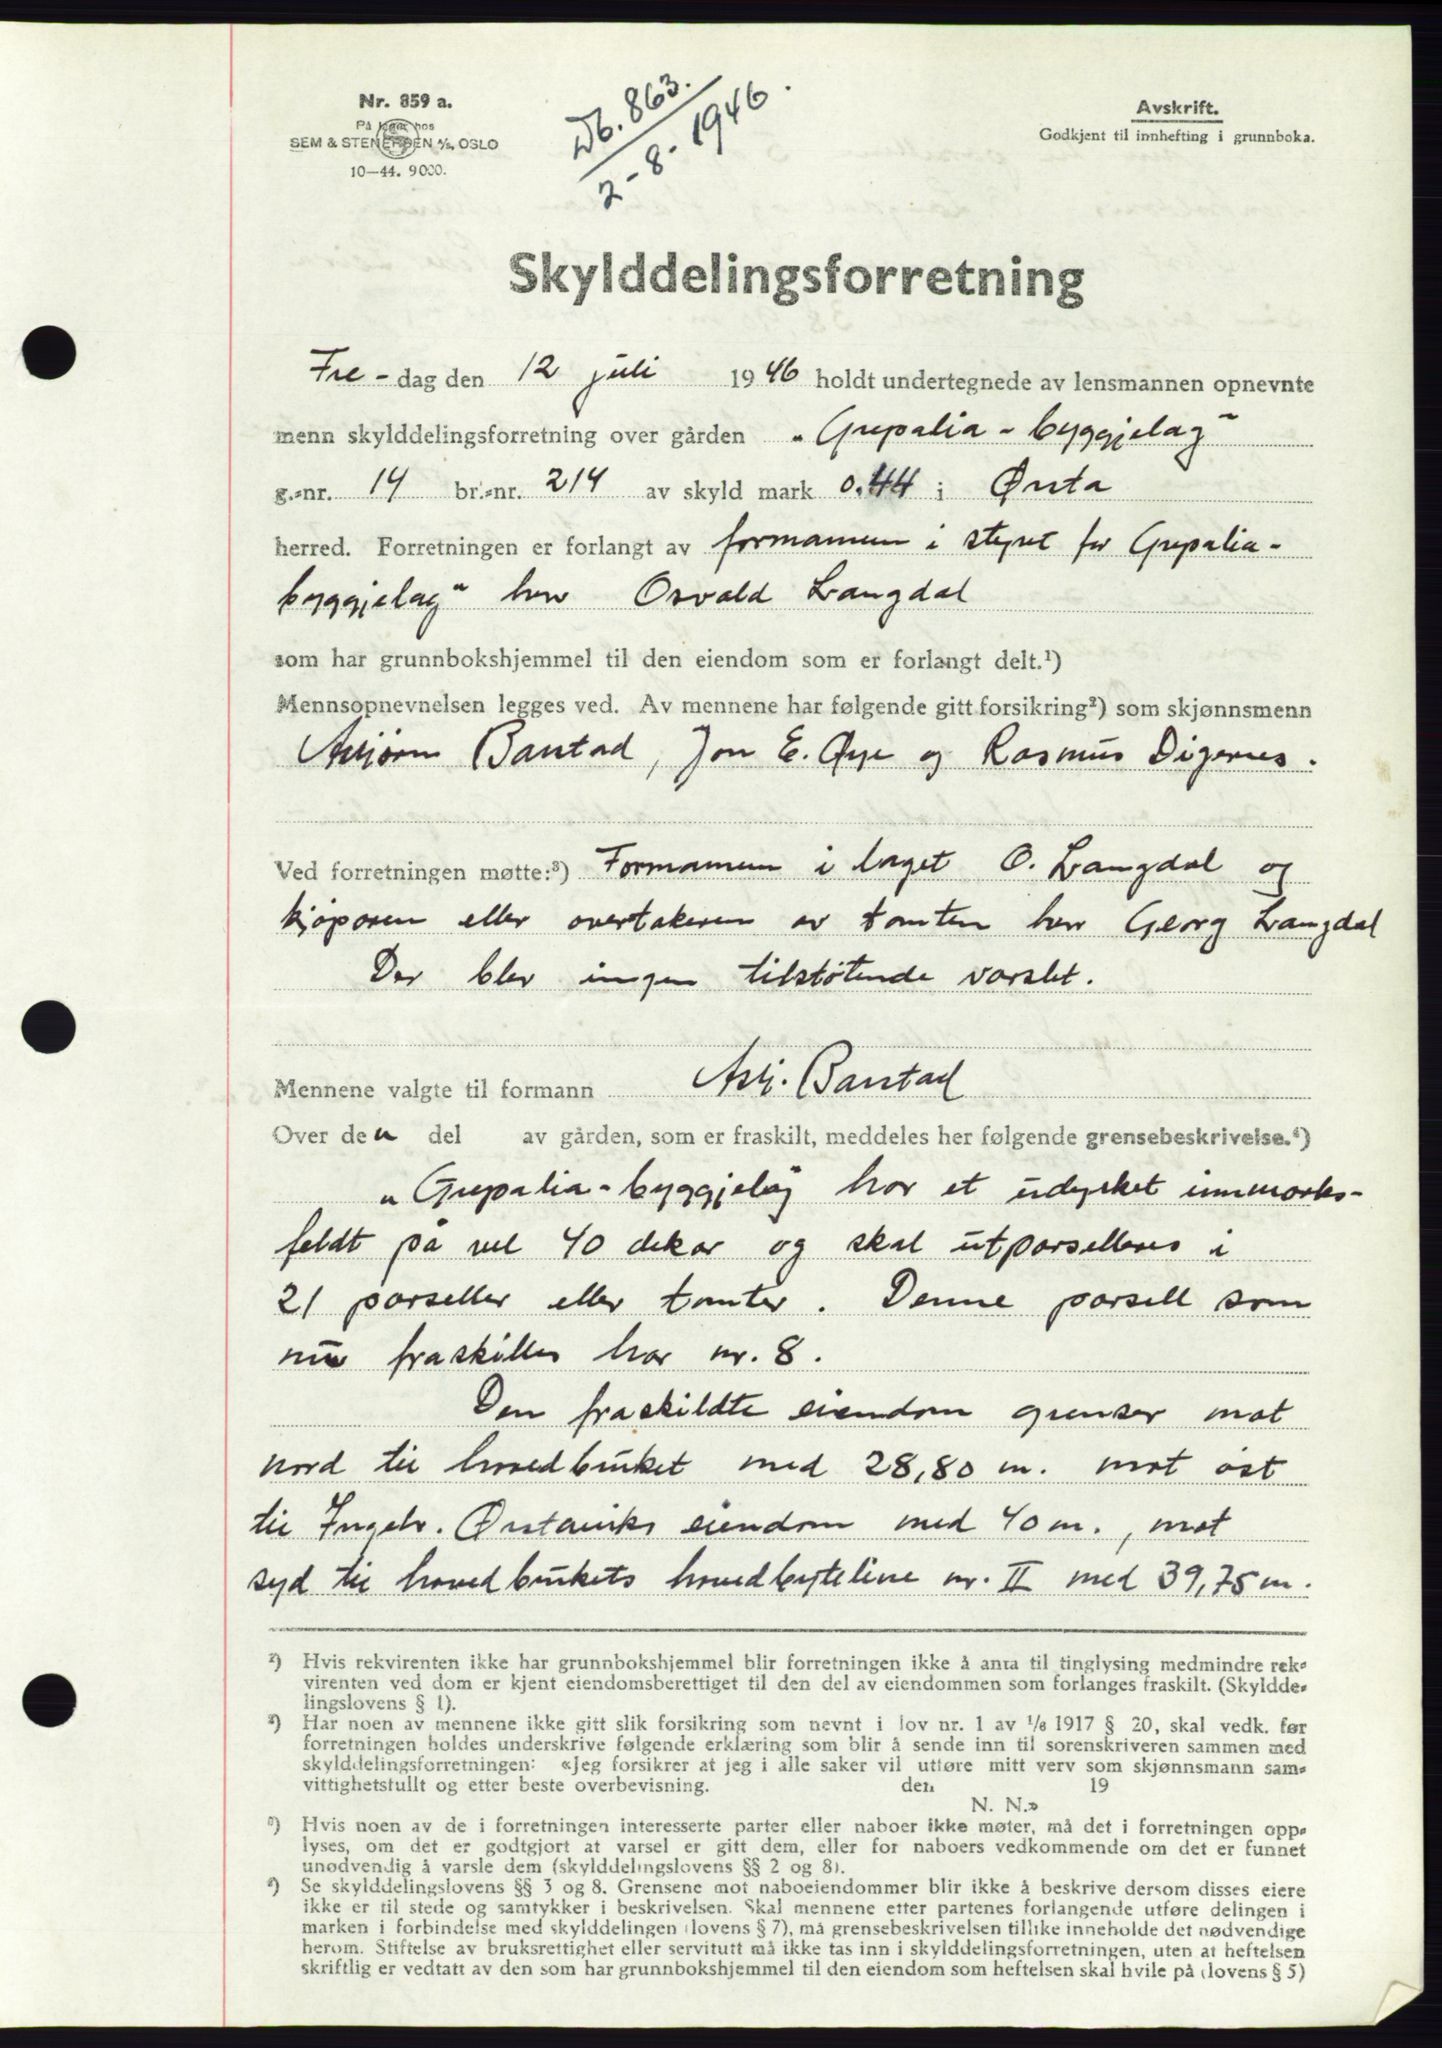 Nr. 859 a.
På lager hos
SEM & STENERSEN A/S, OSLO
10—44. 9000.
Db. 863.
2-8-1946.
Avskrift.
Godkjent til innhefting i grunnboka.
Skylddelingsforretning
Fre-dag den 12 juli 1946 holdt undertegnede av lensmannen opnevnte
menn skylddelingsforretning over gården "Grepalia-byggjelag"
g.-nr. 14 br.-nr. 214 av skyld mark 0.44 i Ørsta
herred. Forretningen er forlangt av formannen i styret for Grepalia-
byggjelag" herr Osvald Langdal
som har grunnbokshjemmel til den eiendom som er forlangt delt.¹)
Mennsopnevnelsen legges ved. Av mennene har følgende gitt forsikring²) som skjønnsmenn
Asbjørn Barstad, Jon E. Øye og Rasmus Digernes.
Ved forretningen møtte:³) Formannen i laget O. Langdal og
kjøperen eller overtakeren av tomten herr Georg Langdal
Der blev ingen tilstøtende varslet.
Mennene valgte til formann Asbj. Barstad
Over den del av gården, som er fraskilt, meddeles her følgende grensebeskrivelse.⁴)
"Grepalia-byggjelag har et udyrket innmarks-
feldt på vel 40 dekar og skal utparselleres i
21 parseller eller tomter. Denne parsell som
nu fraskilles har nr. 8.
Den fraskildte eiendom grenser mot
nord til hovedbruket med 28,80 m. mot øst
til Ingebr. Ørstaviks eiendom med 40 m., mot
syd til hovedbrukets hovedbyteline nr. II med 39,75 m.
¹) Hvis rekvirenten ikke har grunnbokshjemmel blir forretningen ikke å anta til tinglysing medmindre rek-
virenten ved dom er kjent eiendomsberettiget til den del av eiendommen som forlanges fraskilt. (Skyldde-
lingslovens § 1).
²) Har noen av mennene ikke gitt slik forsikring som nevnt i lov nr. 1 av 1/6 1917 § 20, skal vedk. før
forretningen holdes underskrive følgende erklæring som blir å sende inn til sorenskriveren sammen med
skylddelingsforretningen: «Jeg forsikrer at jeg i alle saker vil utføre mitt verv som skjønnsmann sam-
vittighetsfullt og etter beste overbevisning. den 19
N. N.»
³) Hvis noen av de i forretningen interesserte parter eller naboer ikke møter, må det i forretningen opp-
lyses, om det er godtgjort at varsel er gitt dem, eller for naboers vedkommende om det er funnet
unødvendig å varsle dem (skylddelingslovens §§ 2 og 8).
⁴) Se skylddelingslovens §§ 3 og 8. Grensene mot naboeiendommer blir ikke å beskrive dersom disses eiere
ikke er til stede og samtykker i beskrivelsen. Skal mennene etter partenes forlangende utføre delingen i
marken i forbindelse med skylddelingen (lovens § 7), må grensebeskrivelsen tillike inneholde det nødvendige
herom. Stiftelse av bruksrettighet eller servitutt må ikke tas inn i skylddelingsforretningen, uten at heftelsen
skriftlig er vedtatt av den som har grunnbokshjemmel til den eiendom som heftelsen skal hvile på (lovens § 5)